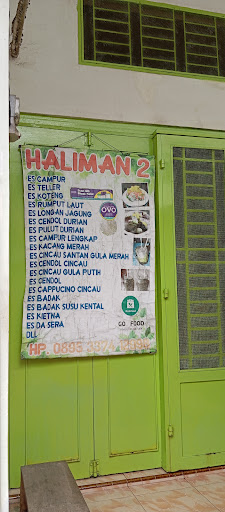 HALIMAN 2
ES CAMPUR
ES TELLER
ES KOTENG
ES RUMPUT LAUT
ES LONGAN JAGUNG
ES CENDOL DURIAN
ES PULUT DURIAN
ES CAMPUR LENGKAP
ES KACANG MERAH
ES CINCAU SANTAN GULA MERAH
ES CENDOL CINCAU
ES CINCAU GULA PUTIH
ES CENDOL
ES CAPPUCINO CINCAU
ES BADAK
ES BADAK SUSU KENTAL
ES KIETNA
ES DA SERA
DLL
OVO
GO FOOD
HP